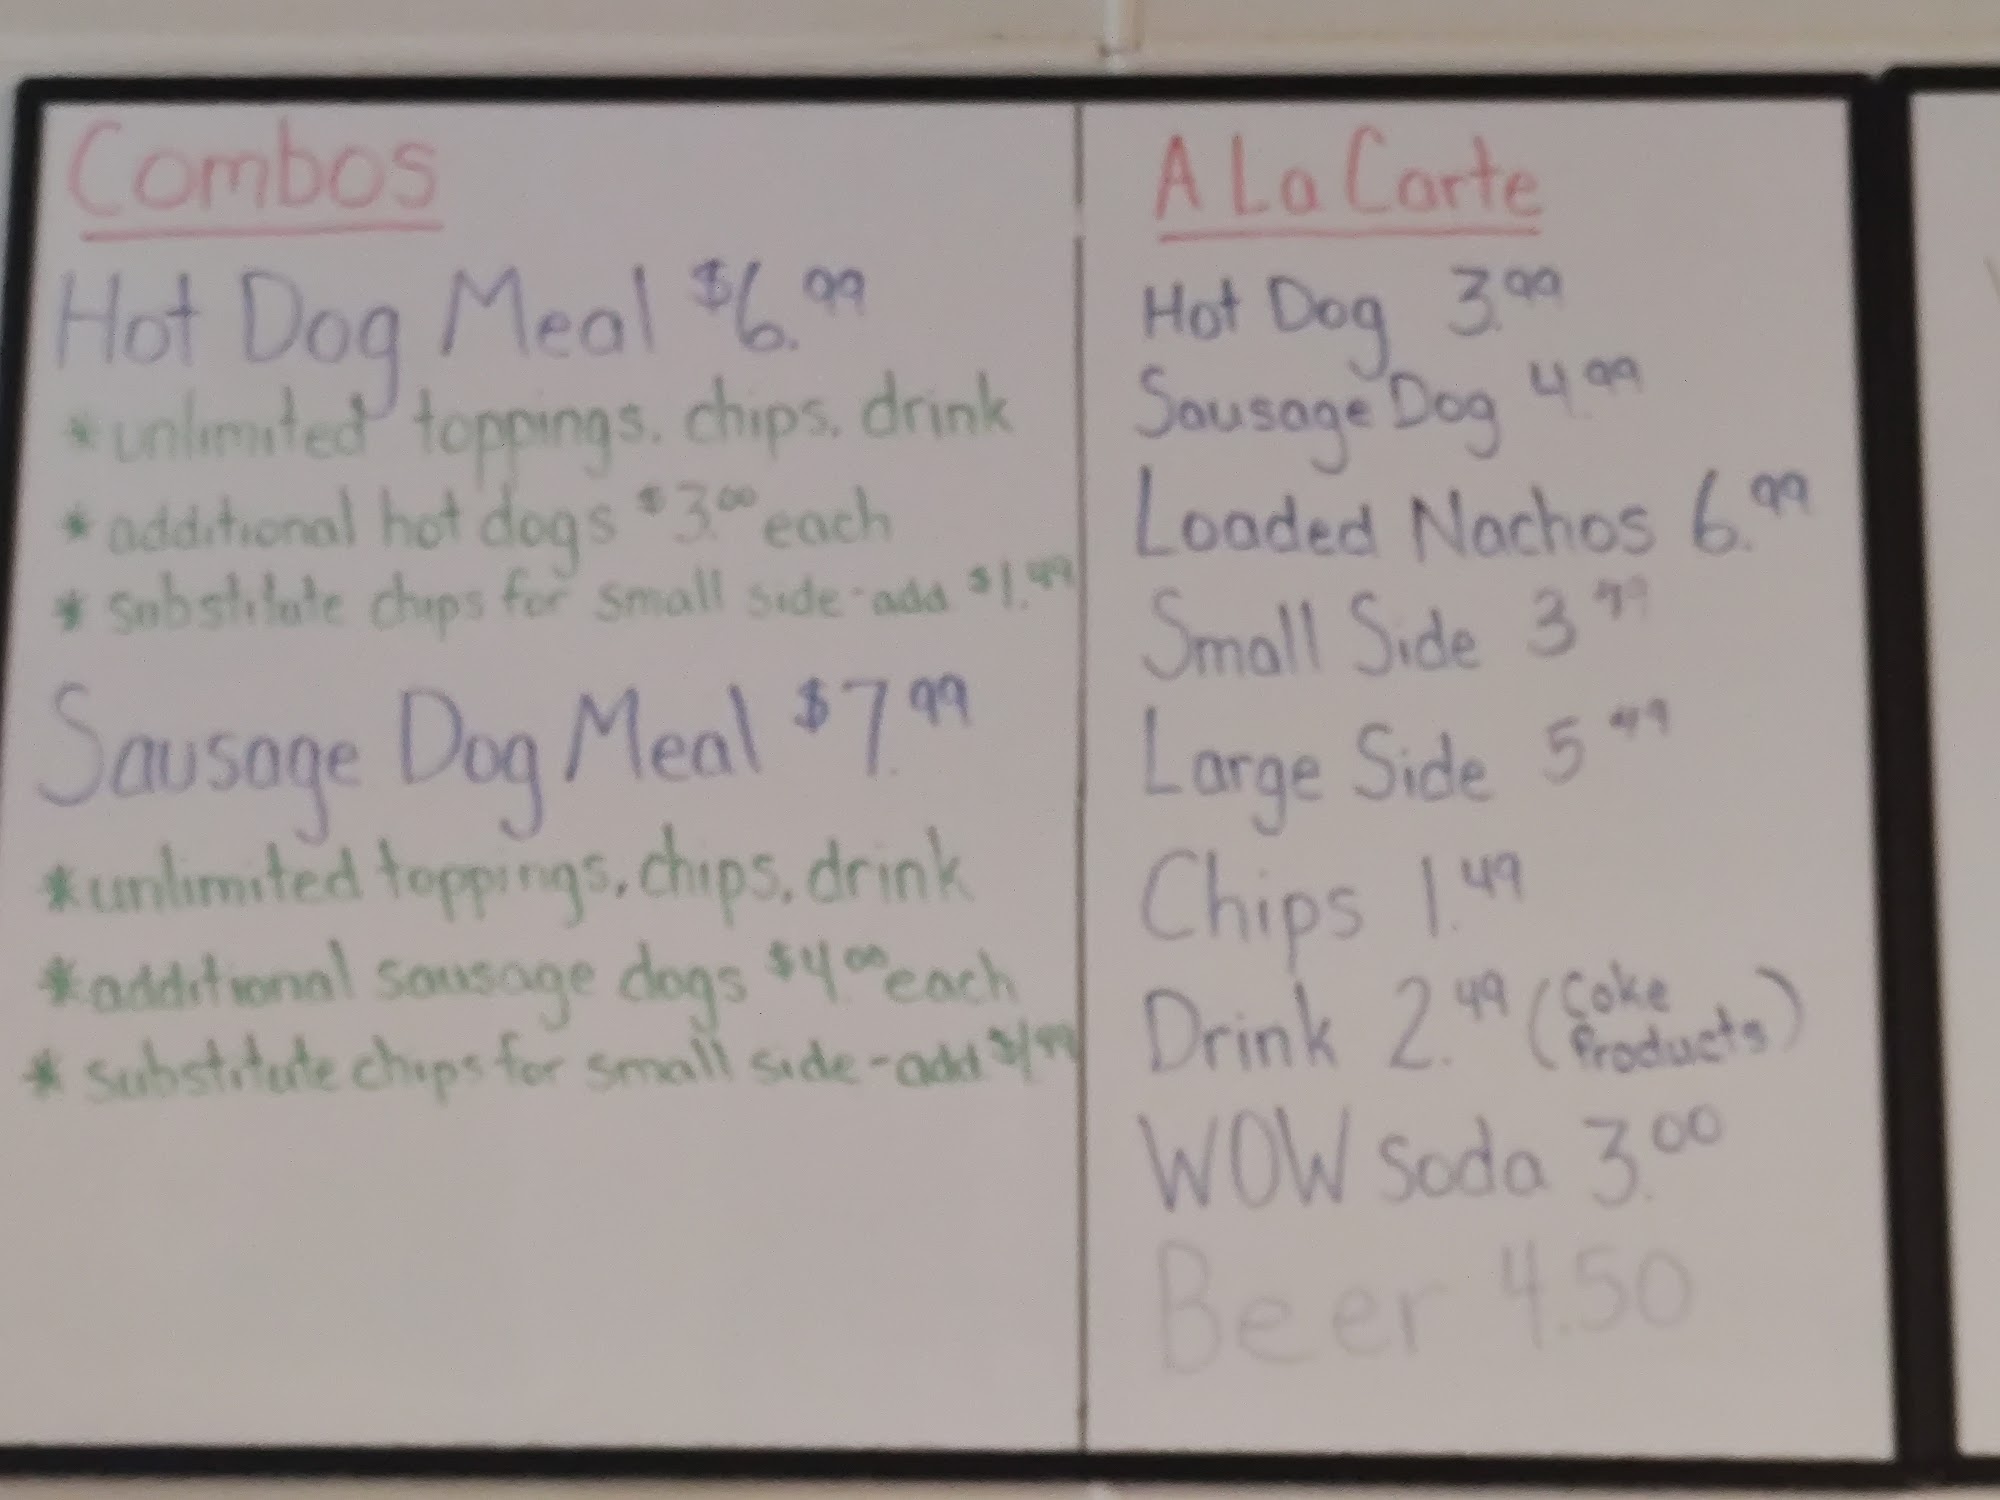 Combos
Hot Dog Meal $6.99
*unlimited toppings, chips, drink
*additional hot dogs $3.00 each
*substitute chips for small side-add $1.99
Sausage Dog Meal $7.99
*unlimited toppings, chips, drink
*additional sausage dogs $4.00 each
*substitute chips for small side-add $1.99
A La Carte
Hot Dog 3.99
Sausage Dog 4.99
Loaded Nachos 6.99
Small Side 3
Large Side 5
Chips 1.49
Drink 2.49 (Coke Products)
WOW Soda 3.00
Beer 4.50